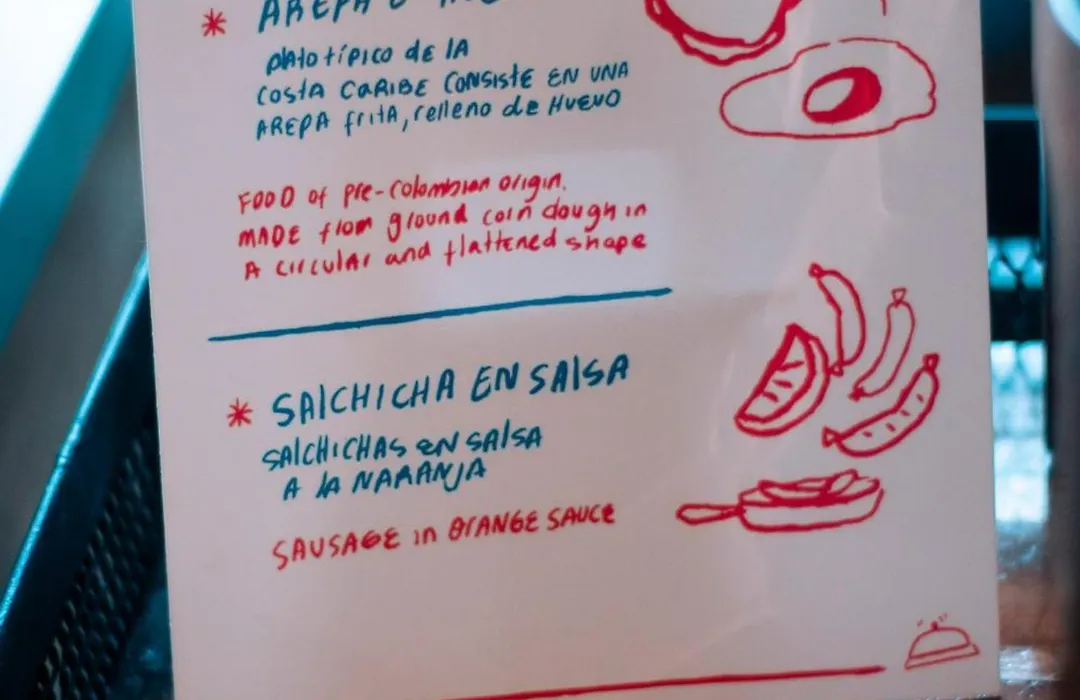 * AREPA
plato típico de lA
COSTA CARIBE CONSISTE EN UNA
AREPA fritA, relleno de HUEVO
FOOD of pre-colombian origin.
MADE from ground corn dough in
A circular and flattened shape
* SAlCHICHA EN SAlSA
SAlCHICHAS EN SAlSA
A lA NARANJA
SAUSAGE in ORANGE SAUCE